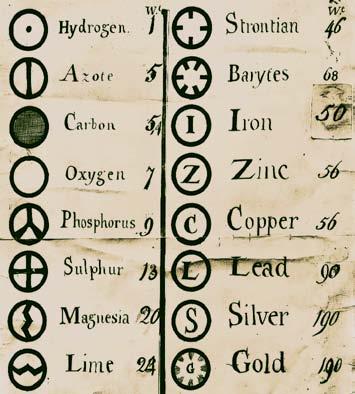 Wt
Hydrogen. 1
Azote 5
Carbon 54
Oxygen 7
Phosphorus 9
Sulphur 13
Magnesia 20
Lime 24
Wt
Strontian 46
Barytes 68
I Iron 50
Z Zinc 56
C Copper 56
L Lead 90
S Silver 190
G Gold 190